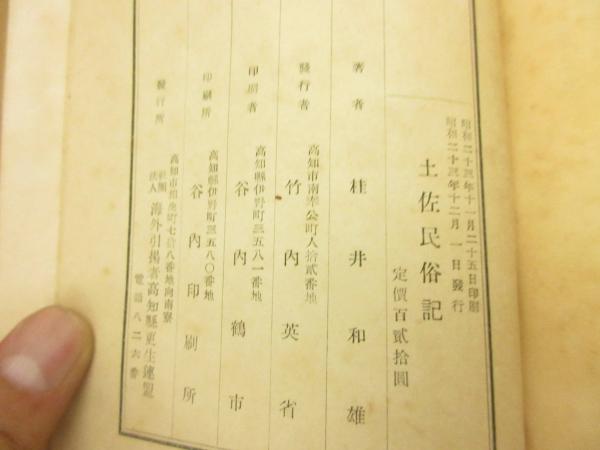 昭和二十三年十一月二十五日印刷
昭和二十三年十二月一日發行
土佐民俗記
定價百貳拾圓
著者 桂井和雄
高知市南奉公町人拾貳番地
發行者 竹內英省
高知縣伊野町三五八一番地
印刷者 谷內鶴市
高知縣伊野町三五八〇番地
印刷所 谷內印刷所
高知市 町七拾八番地向南寮
發行所 社團法人 海外引揚者高知縣更生連盟
電話八二六番